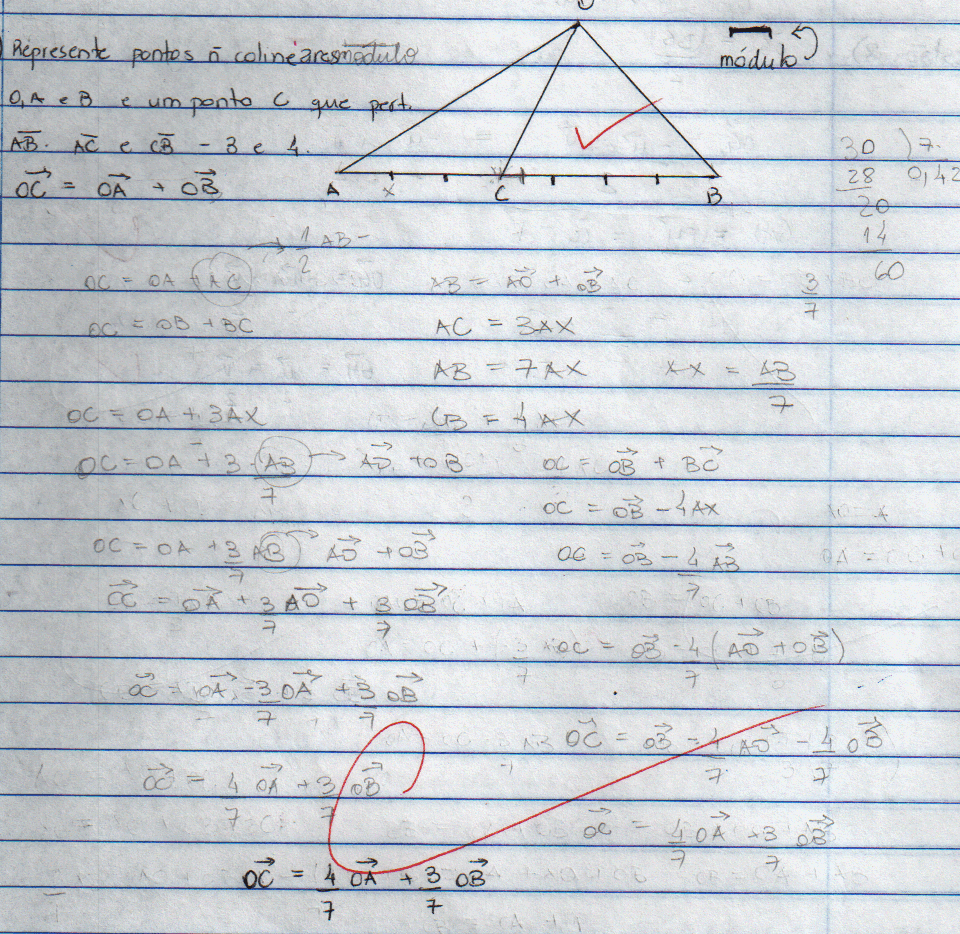 O
Represente pontos ñ colineares módulo
O, A e B e um ponto C que pert.
AB. AC e CB - 3 e 4.
OC = OA + OB
módulo
A x C B
30 7
28 0,42
20
14
60
3/7
1/2 AB
OC = OA + AC
AB = AO + OB
OC = OB + BC
AC = 3AX
AB = 7AX
AX = AB/7
OC = OA + 3AX
CB = 4AX
OC = OA + 3 AB/7 → AO + OB
OC = OB + BC
OC = OB - 4AX
OC = OA + 3/7 AB → AO + OB
OC = OB - 4/7 AB
OC = OA + 3/7 AO + 3/7 OB
OC = OB - 4/7 (AO + OB)
OC = OA - 3/7 OA + 3/7 OB
OC = OB - 4/7 AO - 4/7 OB
OC = 4/7 OA + 3/7 OB
OC = 4/7 OA + 3/7 OB
OC = 4/7 OA + 3/7 OB